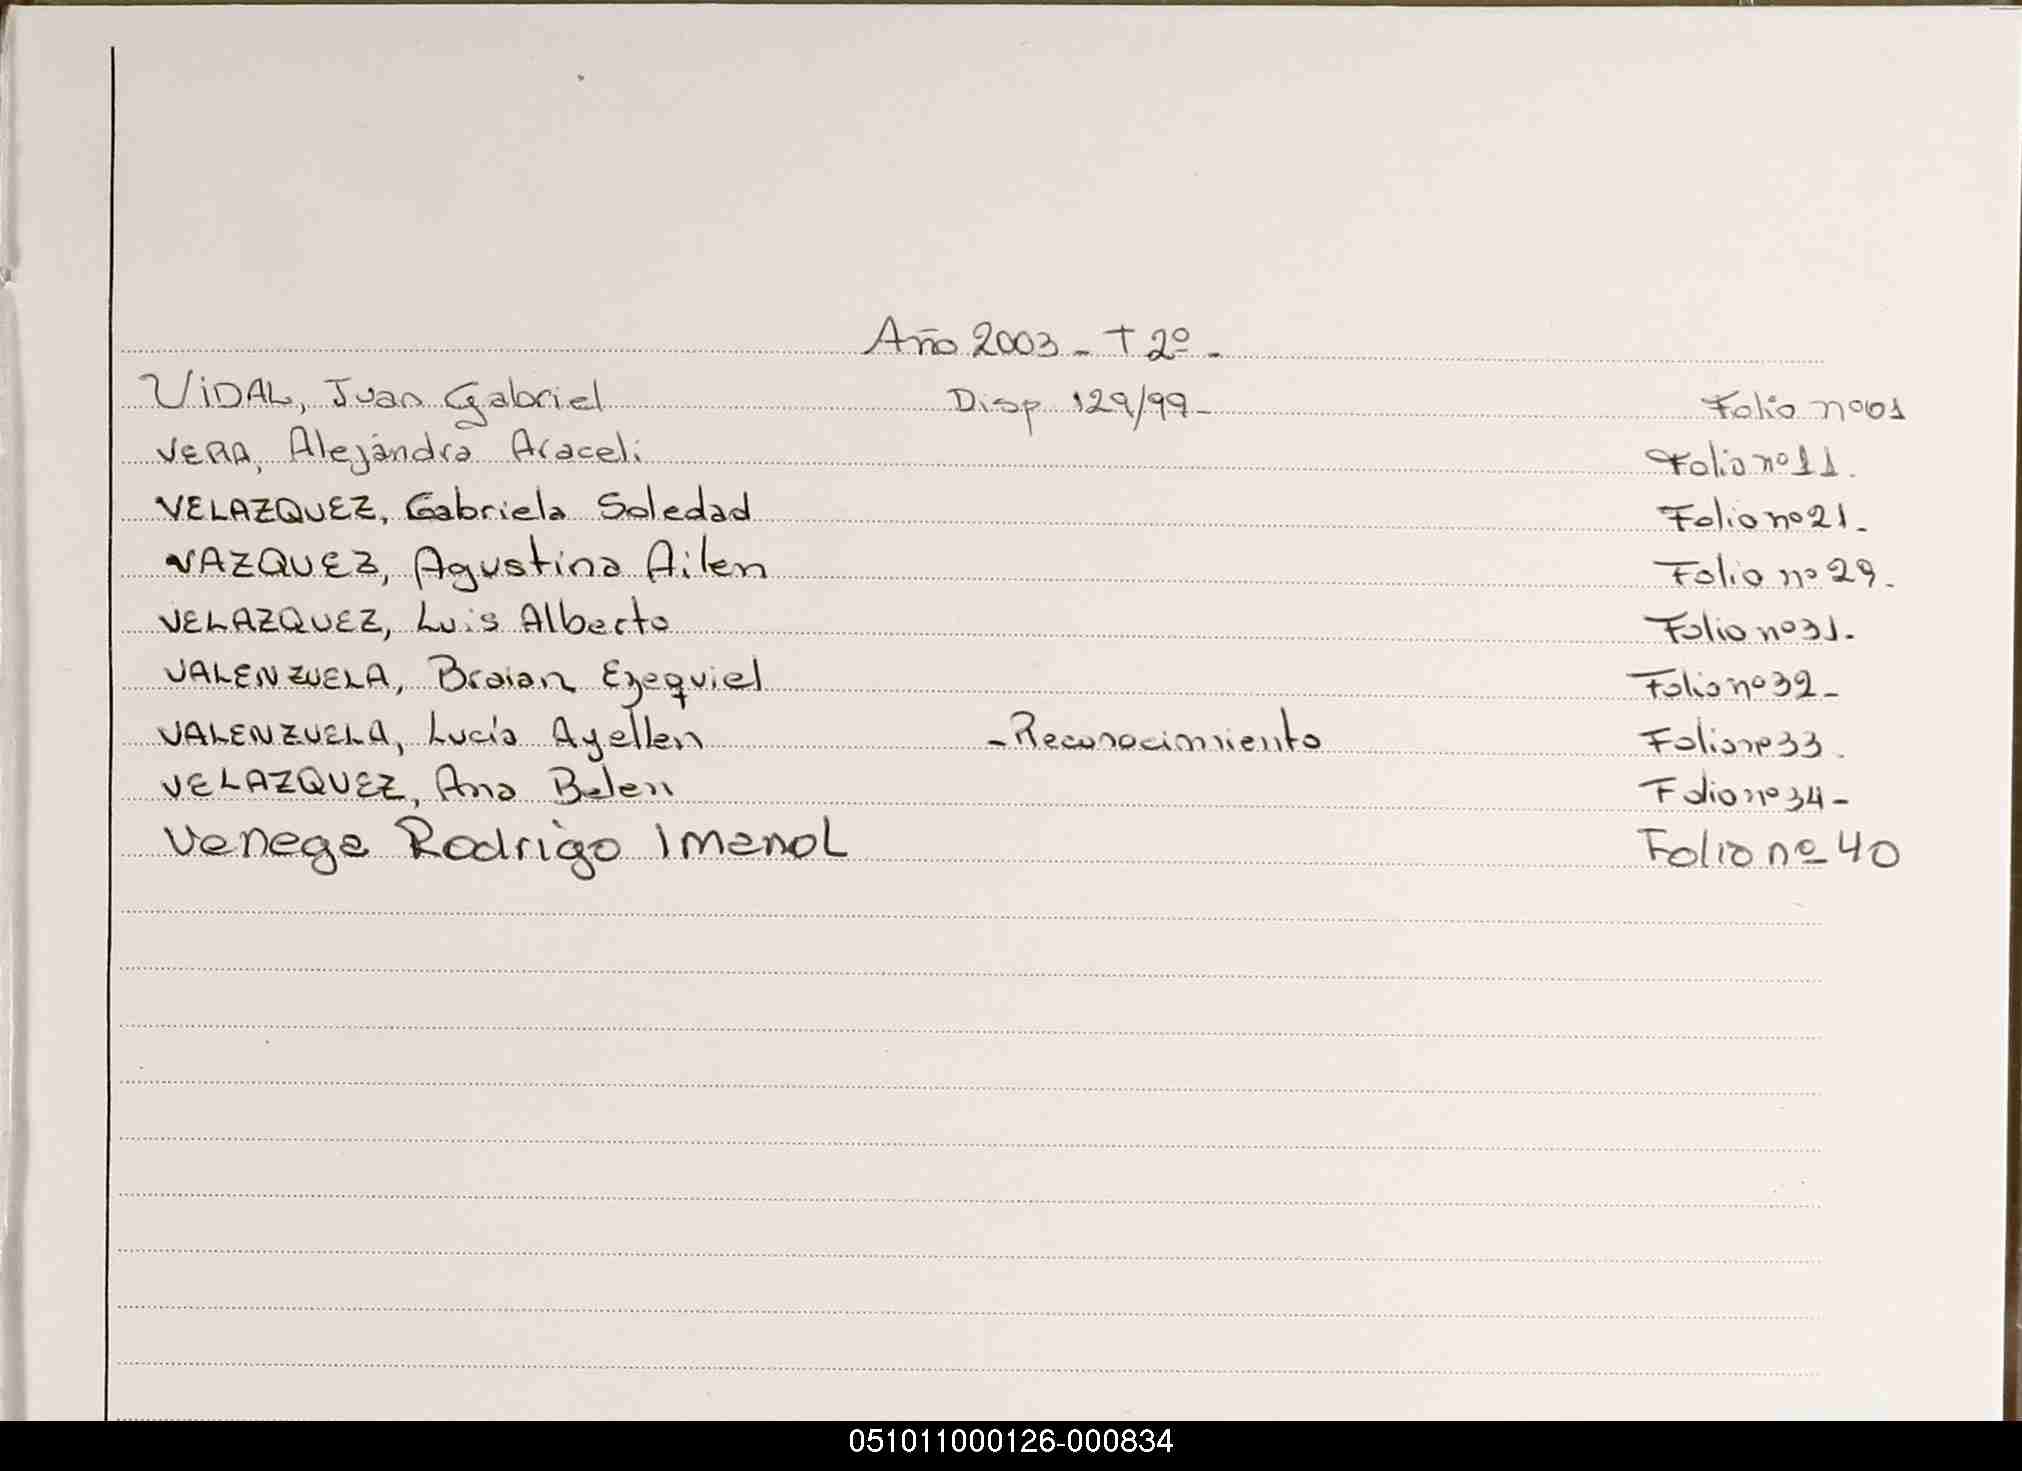 Año 2003 - T 2º -
VIDAL, Juan Gabriel Disp 129/99- Folio nº 01
VERA, Alejandra Araceli Folio nº 11.
VELAZQUEZ, Gabriela Soledad Folio nº 21.
VAZQUEZ, Agustina Ailen Folio nº 29.
VELAZQUEZ, Luis Alberto Folio nº 31.
VALENZUELA, Braian Ezequiel Folio nº 32-
VALENZUELA, Lucía Ayellen -Reconocimiento Folio nº 33.
VELAZQUEZ, Ana Belen Folio nº 34-
Venega Rodrigo Imanol Folio nº 40
051011000126-000834